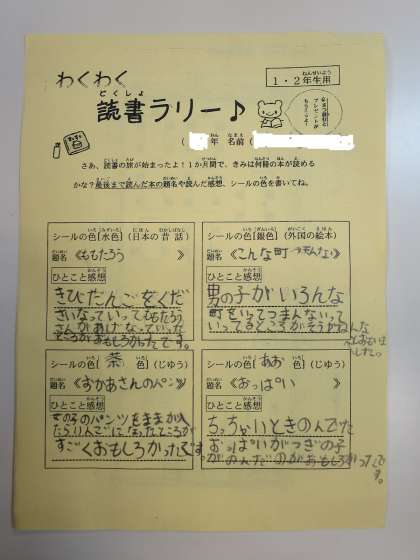 1・2年生用
わくわく
読書ラリー♪
年 名前
さあ、読書の旅が始まったよ！1か月間で、きみは何冊の本が読める
かな？最後まで読んだ本の題名や読んだ感想、シールの色を書いてね。
シールの色[水色] (日本の昔話)
題名《ももたろう》
ひとこと感想
きびだんごをくだ
さいなっていってももたろう
さんがあげなっていった
ところがおもしろかったです。
シールの色[銀色] (外国の絵本)
題名《こんな町 つまんない》
ひとこと感想
男の子がいろんな
町をいってつまんないって
いってるところが
シールの色[茶] (じゆう)
題名《おかあさんのパンツ》
ひとこと感想
女の子のパンツをままが
たらりんごになったところが
すごくおもしろかったです。
シールの色[あお] (じゆう)
題名《おっぱい》
ひとこと感想
ちっちゃいときのんでた
おっぱいがつぎの子
がのんだのがおもしろかったです。